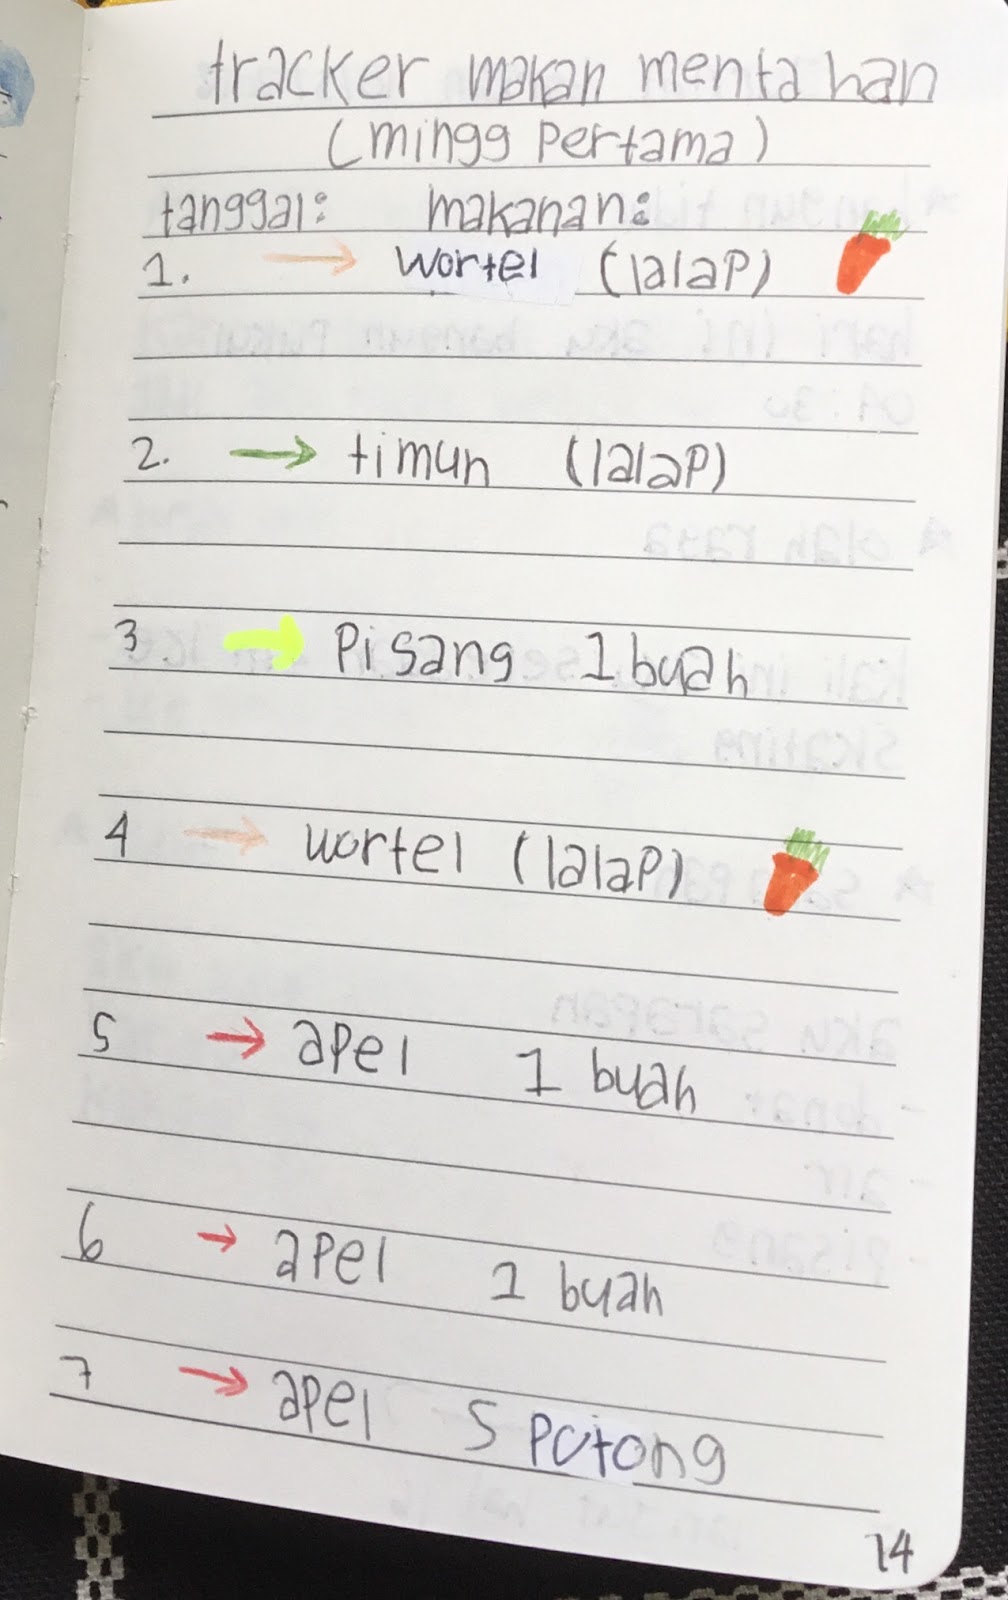 tracker makan mentahan
(mingg pertama)
tanggal: makanan:
1. → wortel (lalap)
2. → timun (lalap)
3 → Pisang 1 buah
4 → wortel (lalap)
5 → apel 1 buah
6 → apel 1 buah
7 → apel 5 potong
14